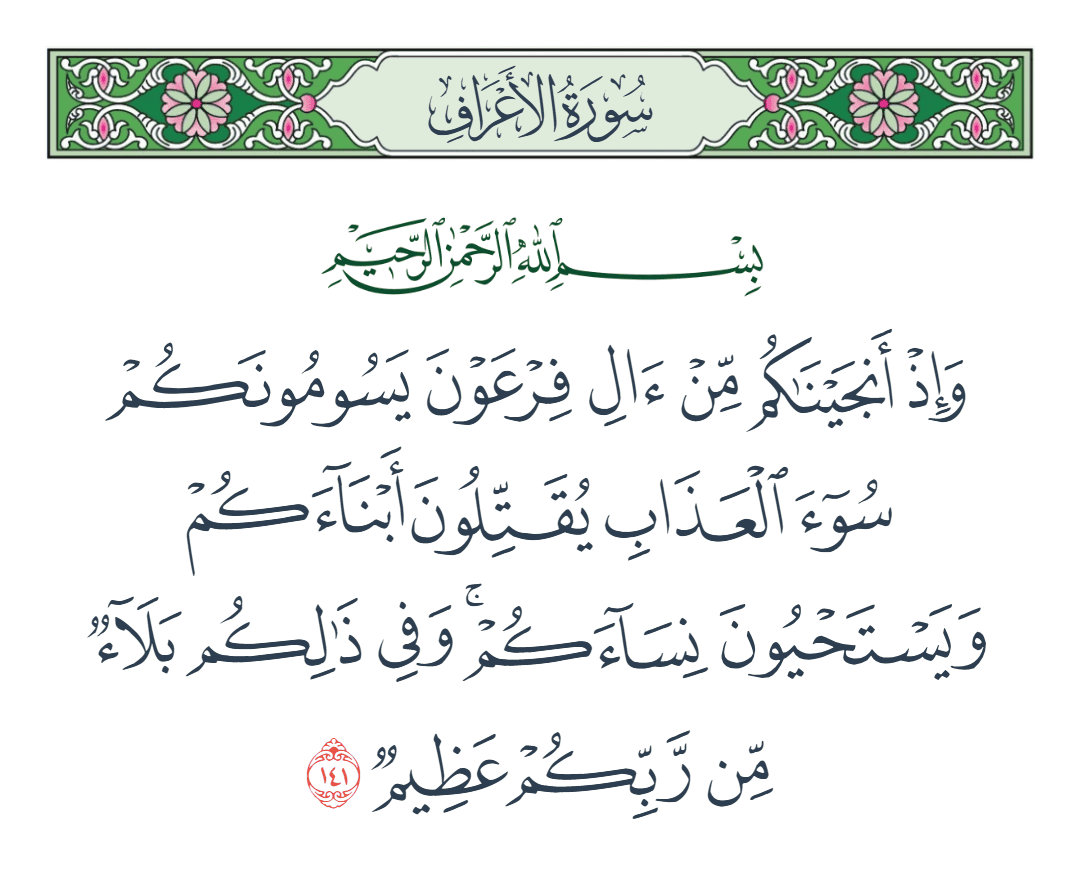 سُورَةُ الأَعْرَافِ
بِسْمِ ٱللَّهِ ٱلرَّحْمَٰنِ ٱلرَّحِيمِ
وَإِذْ أَنجَيْنَٰكُم مِّنْ ءَالِ فِرْعَوْنَ يَسُومُونَكُمْ
سُوٓءَ ٱلْعَذَابِ يُقَتِّلُونَ أَبْنَآءَكُمْ
وَيَسْتَحْيُونَ نِسَآءَكُمْ ۚ وَفِى ذَٰلِكُم بَلَآءٌ
مِّن رَّبِّكُمْ عَظِيمٌ ١٤١